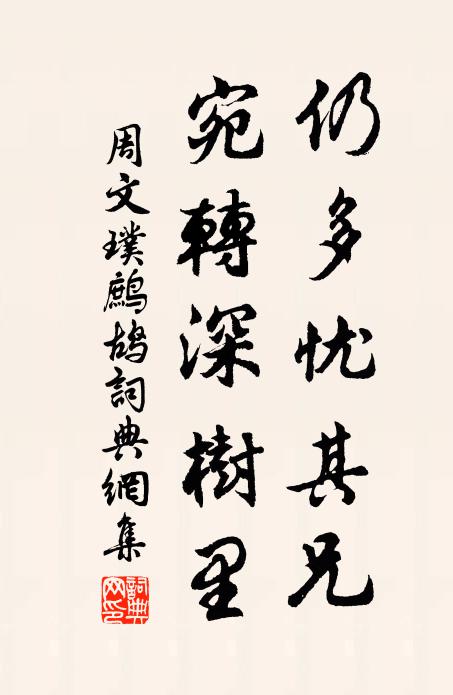 仍多忧其兄
宛轉深樹里
周文璞鷓鴣詞典網集
詞典网印